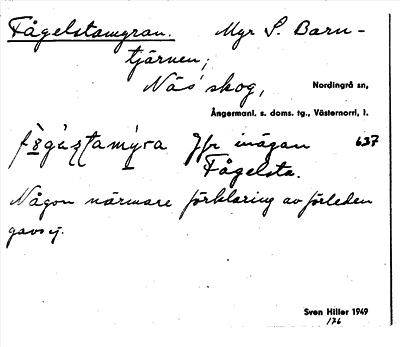 Fågelstamyran. Myr S. Barn-
tjärnen,
Näs' skog, Nordingrå sn,
Ångermanl. s. doms. tg., Västernorrl. l.
Jfr inägan 637
Fågelsta.
Någon närmare förklaring av förleden
gavs ej.
Sven Hiller 1949
176